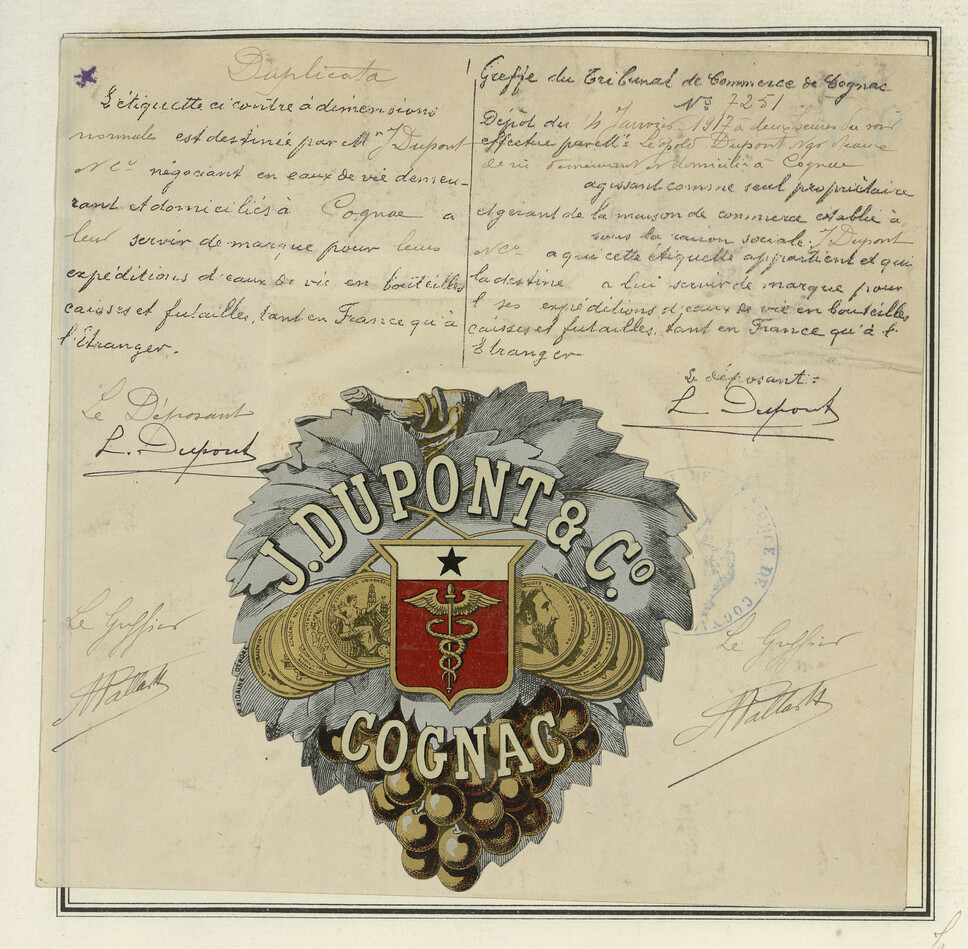 Duplicata
L'étiquette ci contre à dimensions
normales est destinée par Mr J Dupont
& Co négociant en eaux de vie demeu-
rant et domiciliés à Cognac a
leur servir de marque pour leurs
expéditions d'eaux de vie en bouteilles
caisses et futailles, tant en France qu'à
l'Etranger.
Le Déposant
L. Dupont
Greffe du Tribunal de Commerce de Cognac
No 7251
Dépôt du Janvier 1917 à deux heures du soir
effectué par Léopold Dupont
de vie demeurant et domicilié à Cognac
agissant comme seul propriétaire
et gérant de la maison de commerce établie à
sous la raison sociale J Dupont
& Co a qui cette étiquette appartient et qui
la destine a lui servir de marque pour
ses expéditions d'eaux de vie en bouteilles,
caisses et futailles, tant en France qu'à l'
Etranger
Le déposant:
L Dupont
J. DUPONT & Co.
COGNAC
Le Greffier
Le Greffier
DE COGN